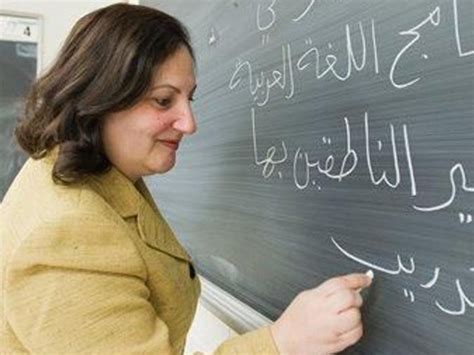 4
في
مج اللغة العربية
ير الناطقين بها
دريب